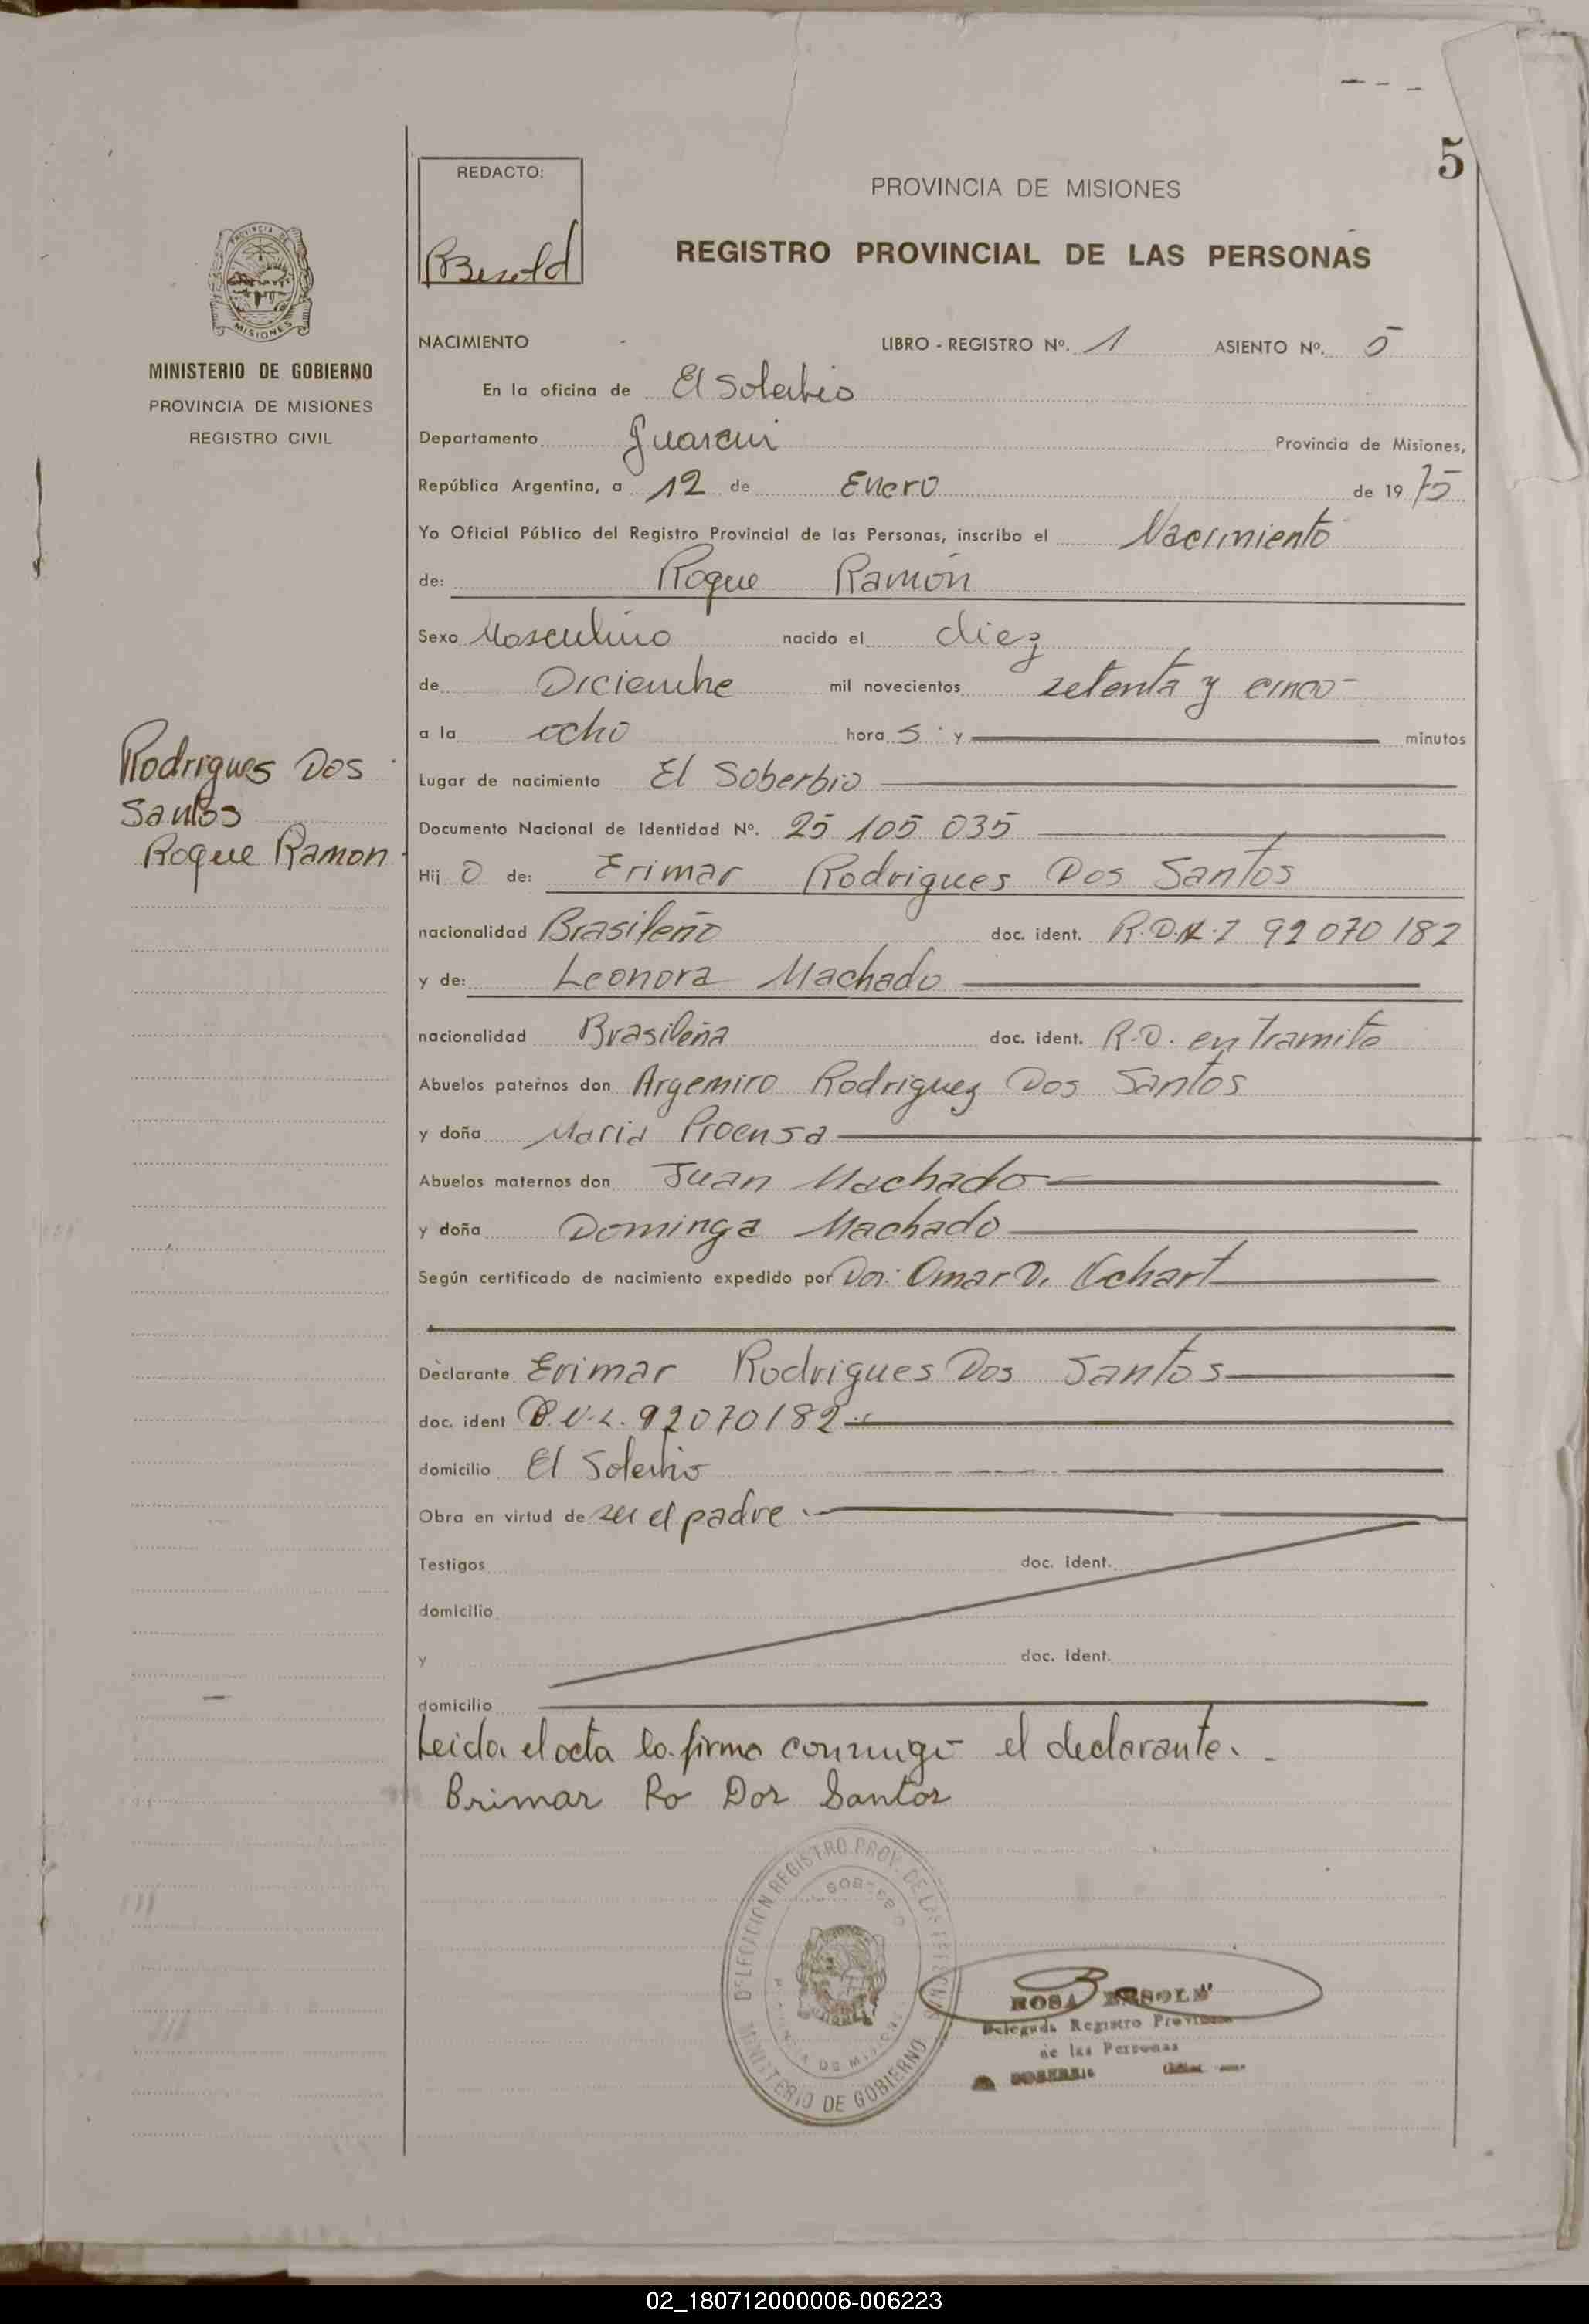 5
REDACTO:
PROVINCIA DE MISIONES
REGISTRO PROVINCIAL DE LAS PERSONAS
MISIONES
MINISTERIO DE GOBIERNO
PROVINCIA DE MISIONES
REGISTRO CIVIL
NACIMIENTO LIBRO - REGISTRO Nº. 1 ASIENTO Nº. 5
En la oficina de El Soberbio
Departamento Guaraní Provincia de Misiones,
República Argentina, a 12 de Enero de 19 75
Yo Oficial Público del Registro Provincial de las Personas, inscribo el Nacimiento
de: Roque Ramón
Sexo Masculino nacido el diez
de Diciembre mil novecientos setenta y cinco
a la ocho hora s y minutos
Rodrigues Dos
Santos
Roque Ramon
Lugar de nacimiento El Soberbio
Documento Nacional de Identidad Nº. 25 105 035
Hij o de: Erimar Rodrigues Dos Santos
nacionalidad Brasileño doc. ident. 92 070 182
y de: Leonora Machado
nacionalidad Brasileña doc. ident. R.D. en tramite
Abuelos paternos don Argemiro Rodriguez Dos Santos
y doña Maria Proensa
Abuelos maternos don Juan Machado
y doña Dominga Machado
Según certificado de nacimiento expedido por Dor: Omar D. Uchart
Declarante Erimar Rodrigues Dos Santos
doc. ident 92070182
domicilio El Soberbio
Obra en virtud de ser el padre
Testigos doc. ident.
domicilio
y doc. ident.
domicilio
Leida el acta la firma conmigo el declarante.
Erimar Ro Dos Santos
DELEGACION REGISTRO PROV. DE LAS PERSONAS
MINISTERIO DE GOBIERNO
ROSA
Delegada Registro Provincial
de las Personas
02_180712000006-006223